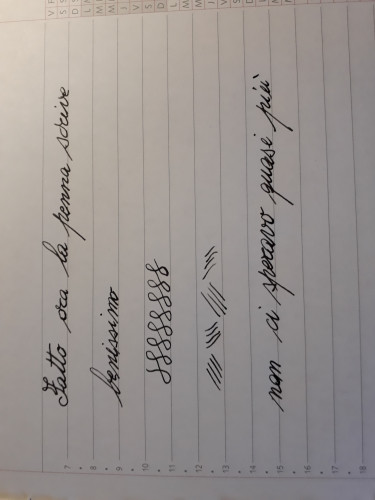 Fatto ora la penna scrive
benissimo
non ci speravo quasi più
7
8
9
10
11
12
13
14
15
16
17
18